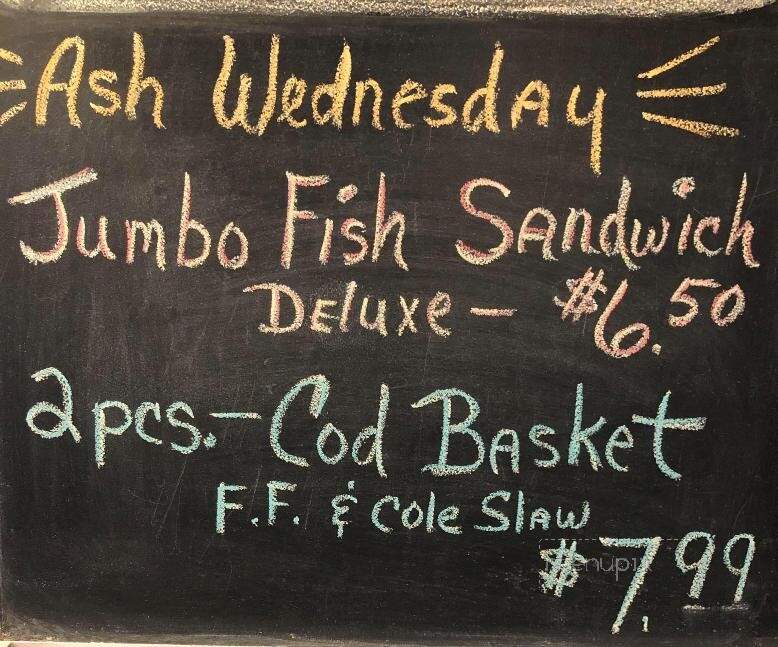 Ash Wednesday
Jumbo Fish Sandwich
Deluxe - $6.50
2pcs. - Cod Basket
F.F. & Cole Slaw
$7.99
menupix